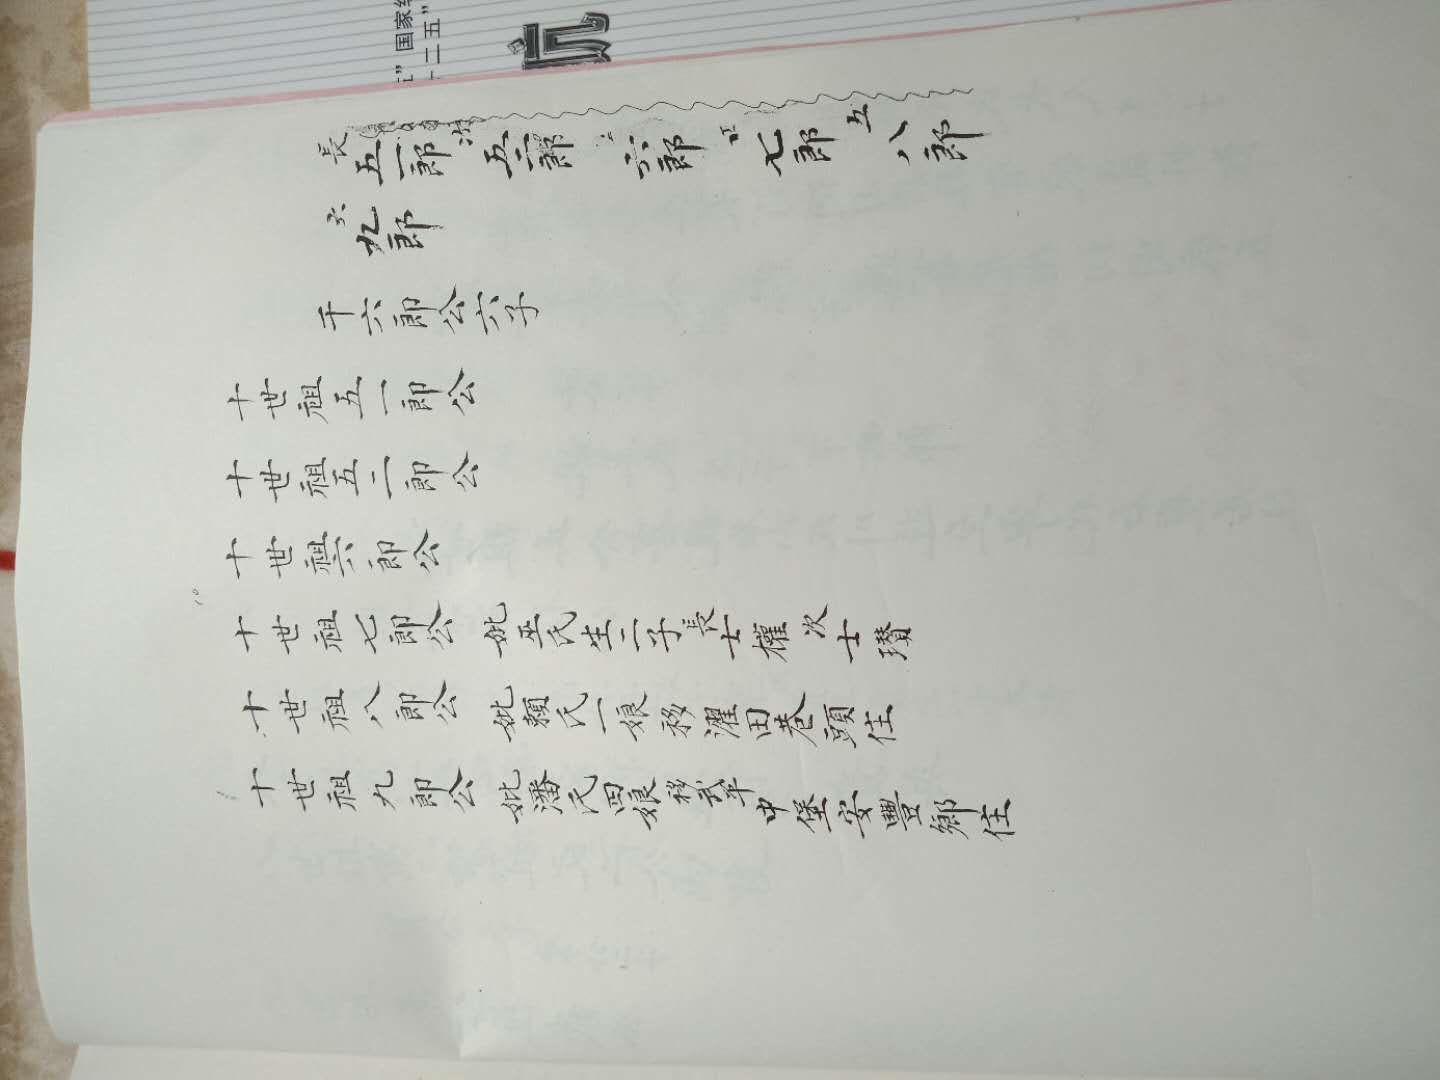 国家
十二五”
長五一郎 次五二郎 三六郎 四七郎 五八郎
六九郎
千六郎公六子
十世祖五一郎公
十世祖五二郎公
十世祖六郎公
十世祖七郎公 妣巫氏生二子長士權次士瓚
十世祖八郎公 妣賴氏一娘移濯田巷頭住
十世祖九郎公 妣潘氏四娘移武平中堡安豐鄉住